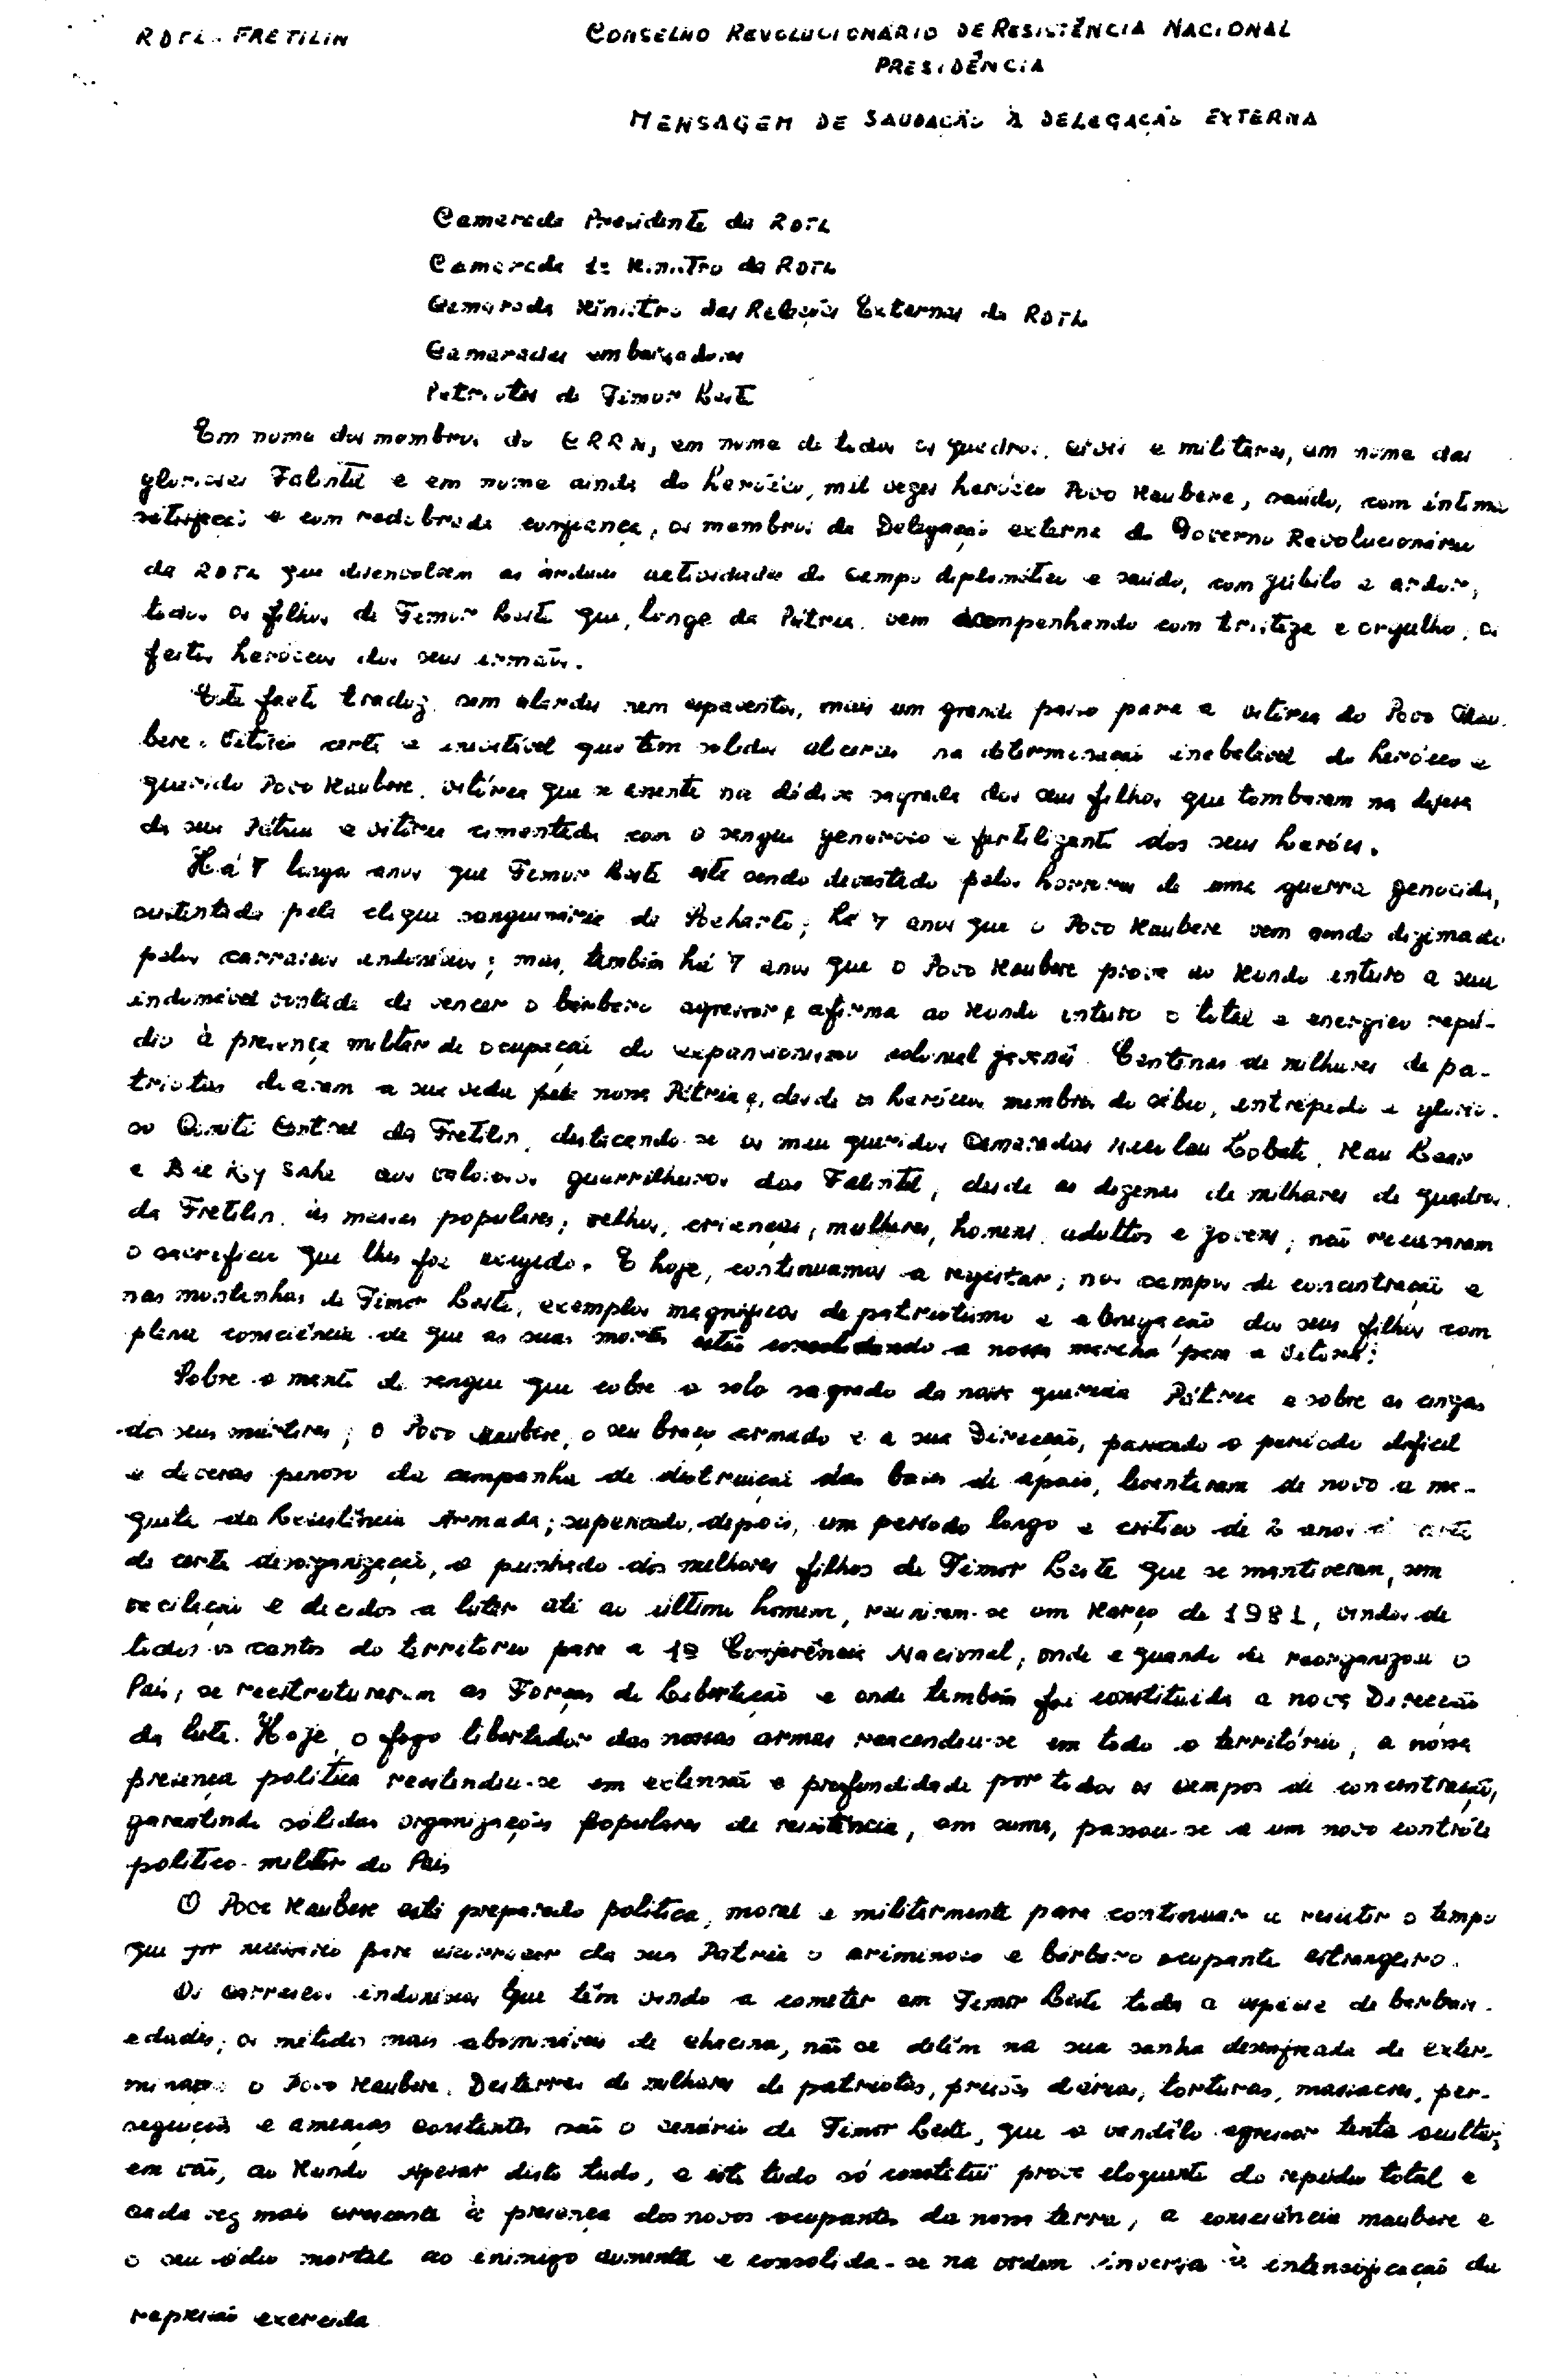 RDTL - FRETILIN
CONSELHO REVOLUCIONÁRIO DE RESISTÊNCIA NACIONAL
PRESIDÊNCIA
MENSAGEM DE SAUDAÇÃO À DELEGAÇÃO EXTERNA
Camarada Presidente da RDTL
Camarada 1º Ministro da RDTL
Camarada Ministro das Relações Externas da RDTL
Camaradas embaixadores
Patriotas de Timor Leste
Em nome dos membros do CRRN, em nome de todos os quadros, civis e militares, em nome das
gloriosas Falintil e em nome ainda do heróico, mil vezes heróico Povo Maubere, saúdo, com íntima
satisfação e com redobrada confiança, os membros da Delegação externa do Governo Revolucionário
da RDTL que desenvolvem as árduas actividades do campo diplomático e saúdo, com júbilo e ardor,
todos os filhos de Timor Leste que, longe da Pátria, vem acompanhando com tristeza e orgulho, os
feitos heróicos dos seus irmãos.
Este facto traduz, sem alardes nem espaventos, mais um grande passo para a vitória do Povo Mau-
bere. Vitória certa e inevitável que tem solidos alicerces na determinação inabalável do heróico e
querido Povo Maubere, vitória que se assenta na dádiva sagrada dos seus filhos que tombaram na defesa
da sua Pátria e vitória cimentada com o sangue generoso e fertilizante dos seus heróis.
Há 7 longos anos que Timor Leste está sendo devastado pelos horrores de uma guerra genocida,
sustentada pela clique sanguinária de Soeharto; há 7 anos que o Povo Maubere vem sendo dizimado
pelos carrascos indonésios; mas, também há 7 anos que o Povo Maubere prova ao Mundo inteiro a sua
indomável vontade de vencer o bárbaro agressor e afirma ao Mundo inteiro o total e energico repú-
dio à presença militar de ocupação do expansionismo colonial javanês. Centenas de milhares de pa-
triotas deram a sua vida pela nossa Pátria e, desde os heróicos membros do sábio, intrépido e glorio-
so Comité Central da Fretilin, destacando-se os meus queridos Camaradas Nicolau Lobato, Mau Lear
e Bie Ky Sahe aos valorosos guerrilheiros das Falintil, desde as dezenas de milhares de quadros
da Fretilin, às massas populares; velhos, crianças, mulheres, homens, adultos e jovens, não recusaram
o sacrificio que lhes foi exigido. E hoje, continuamos a registar, nos campos de concentração e
nas montanhas de Timor Leste, exemplos magníficos de patriotismo e abnegação dos seus filhos com
plena consciência de que as suas mortes estão consolidando a nossa marcha para a Vitória!
Sobre o manto de sangue que cobre o solo sagrado da nossa querida Pátria e sobre as cinzas
dos seus mártires, o Povo Maubere, o seu braço armado e a sua Direcção, passado o período dificil
e deveras penoso da campanha de destruição das bases de apoio, levantaram de novo a ma-
queta da Resistência Armada; superado, depois, um período longo e crítico de 2 anos
de certa desorganização, o punhado dos melhores filhos de Timor Leste que se mantiveram, sem
vacilação e decidos a lutar até ao último homem, reuniram-se em Março de 1981, vindos de
todos os cantos do territorio para a 1ª Conferência Nacional, onde e quando se reorganizou o
País, se reestruturaram as Forças de Libertação e onde também foi constituida a nova Direcção
da luta. Hoje, o fogo libertador das nossas armas reacendeu-se em todo o território, a nossa
presença política reestendeu-se em extensão e profundidade por todos os campos de concentração,
garantindo sólidas organizações populares de resistência, em suma, passou-se a um novo contrôle
político-militar do País
O Povo Maubere está preparado política, moral e militarmente para continuar a resistir o tempo
que for necessário para escorraçar da sua Pátria o criminoso e bárbaro ocupante estrangeiro.
Os carrascos indonésios que têm vindo a cometer em Timor Leste toda a espécie de barbari-
edades, os métodos mais abomináveis de chacina, não se detêm na sua sanha desenfreada de exter-
minarem o Povo Maubere. Desterros de milhares de patriotas, prisões diárias, torturas, massacres, per-
seguições e ameaças constantes são o cenário de Timor Leste, que o vandálo agressor tenta ocultar,
em vão, ao Mundo. Apesar disto tudo, e isto tudo só constitui prova eloquente do repúdio total e
cada vez mais crescente à presença dos novos ocupantes da nossa terra, a consciência maubere e
o seu ódio mortal ao inimigo aumenta e consolida-se na ordem inversa à intensificação da
repressão exercida